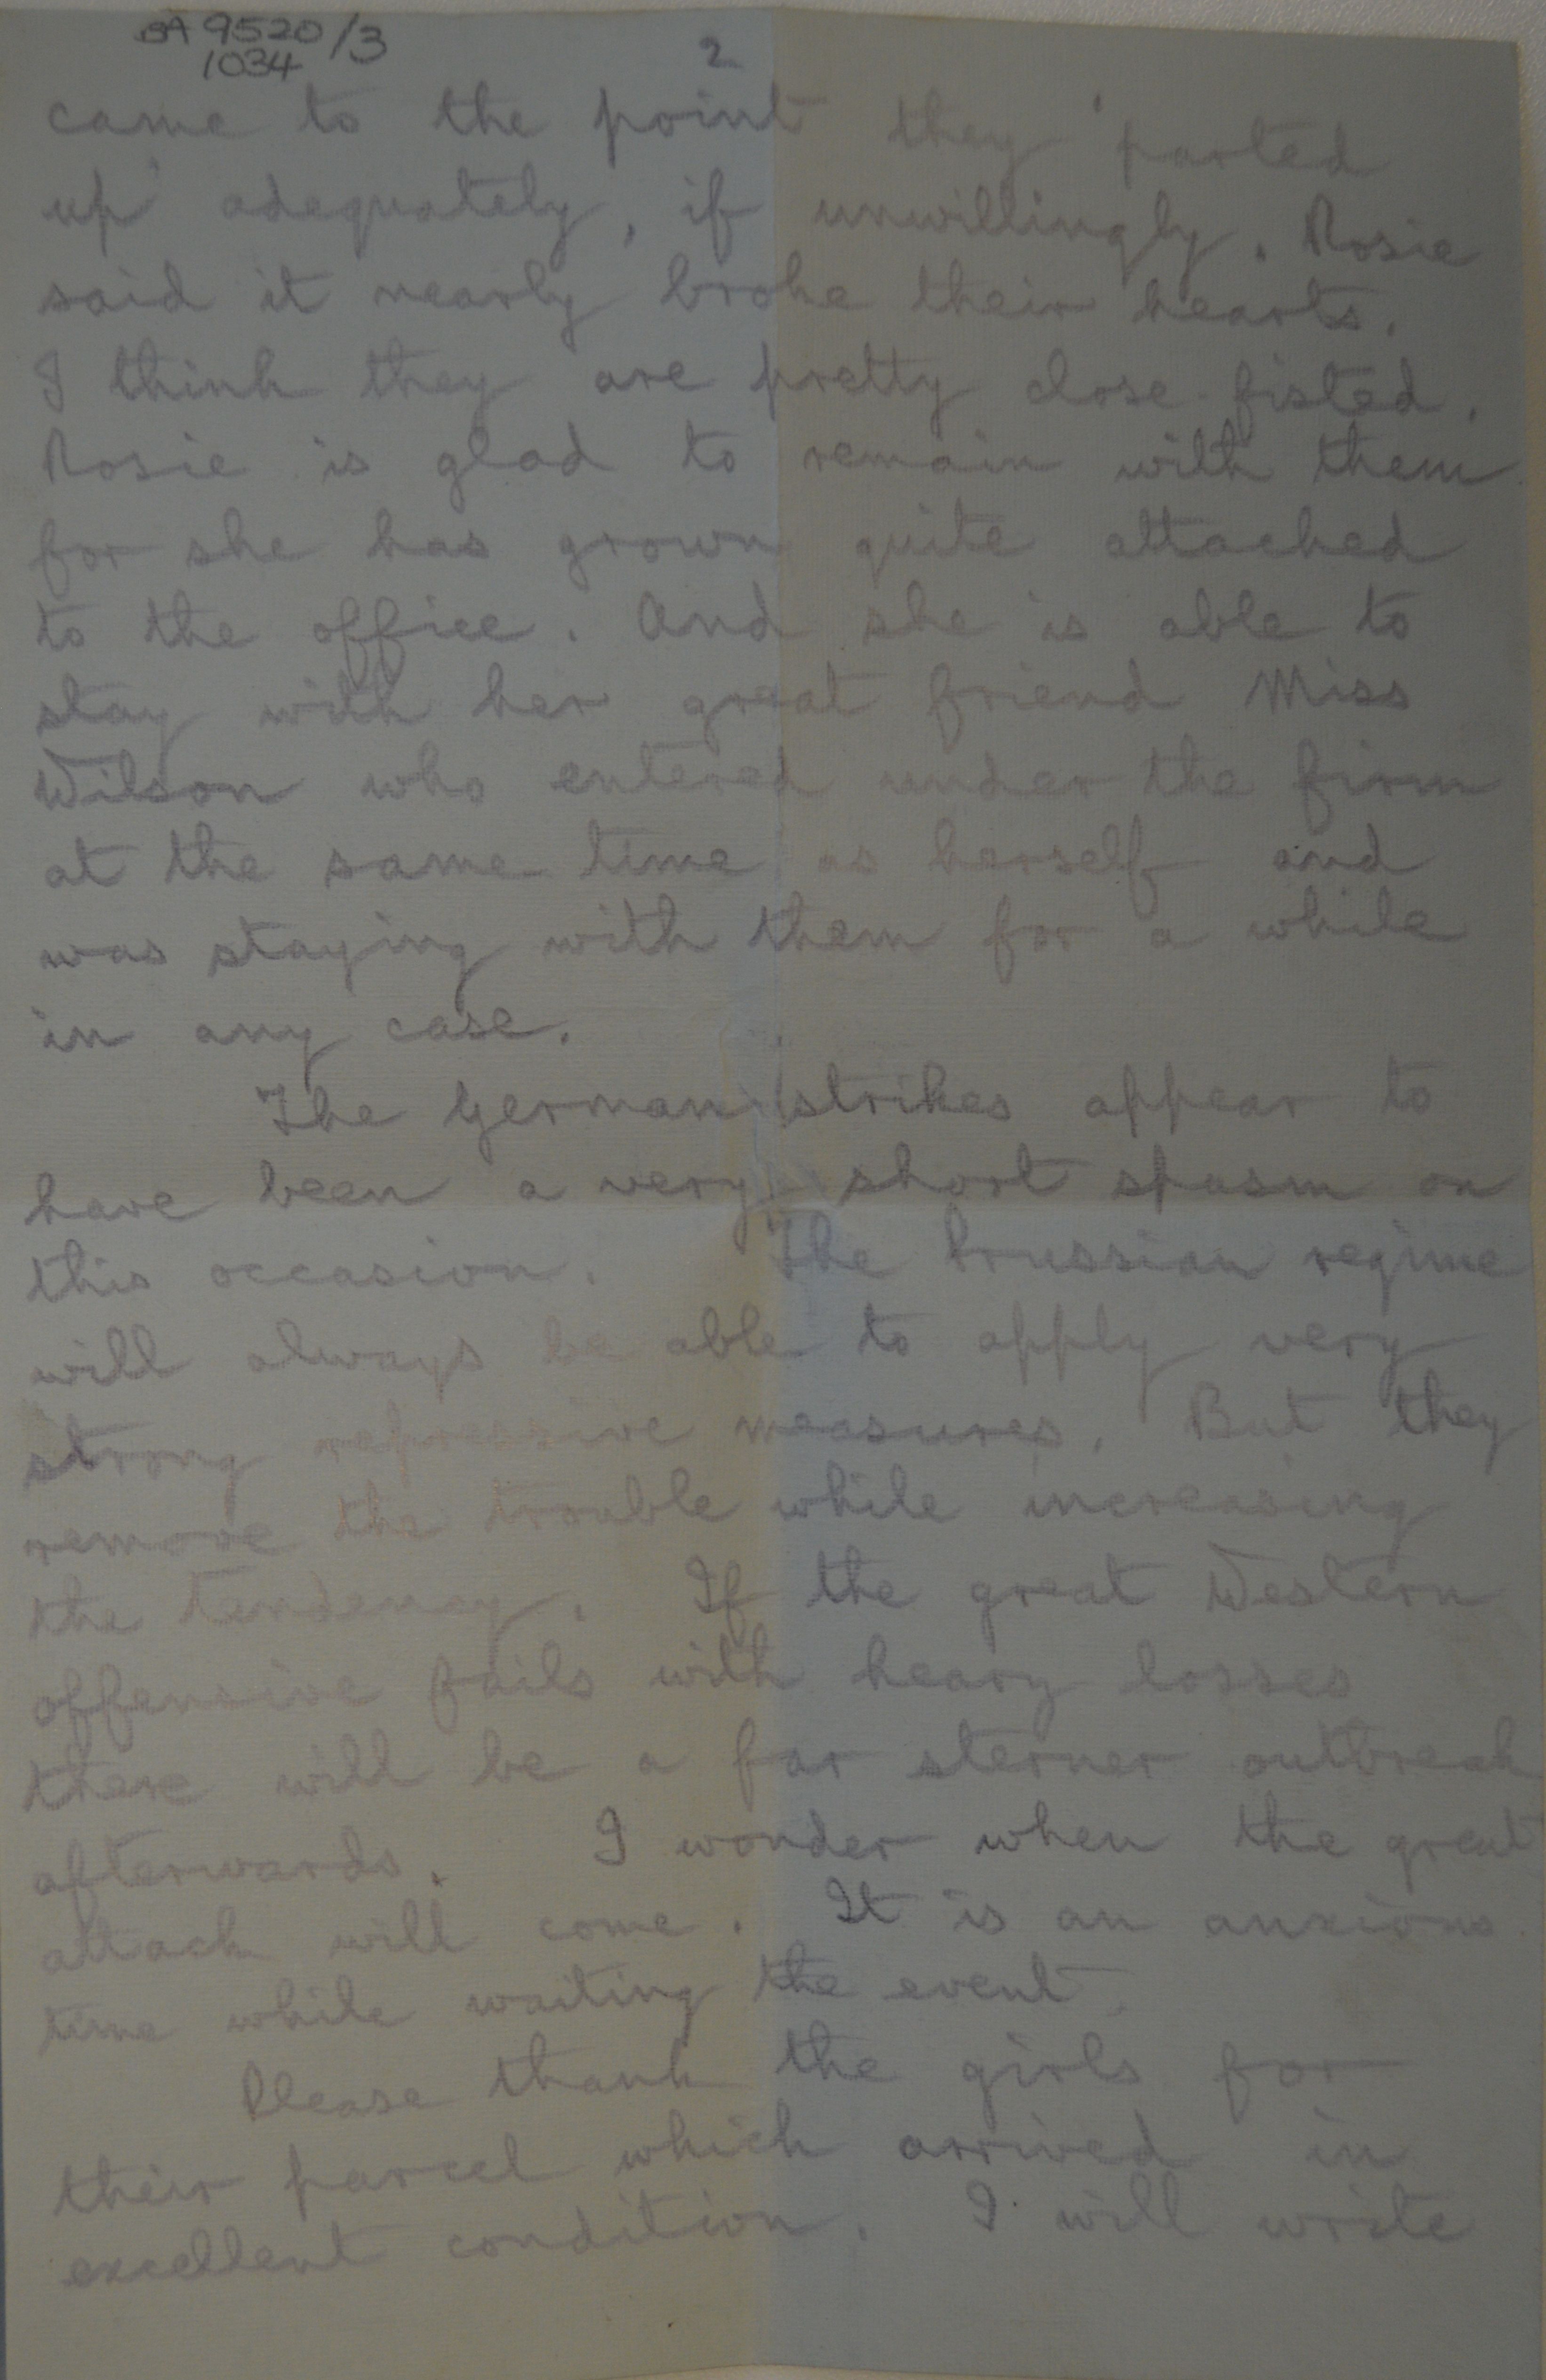 BA 9520/3
1034
2
came to the point they 'parted
up' adequately, if unwillingly. Rosie
said it nearly broke their hearts.
I think they are pretty close-fisted.
Rosie is glad to remain with them
for she has grown quite attached
to the office. And she is able to
stay with her great friend Miss
Wilson who entered under the firm
at the same time as herself and
was staying with them for a while
in any case.
The German strikes appear to
have been a very short spasm on
this occasion. The Prussian regime
will always be able to apply very
strong repressive measures. But they
remove the trouble while increasing
the tendency. If the great Western
offensive fails with heavy losses
there will be a far sterner outbreak
afterwards. I wonder when the great
attack will come. It is an anxious
time while waiting the event.
Please thank the girls for
their parcel which arrived in
excellent condition. I will write